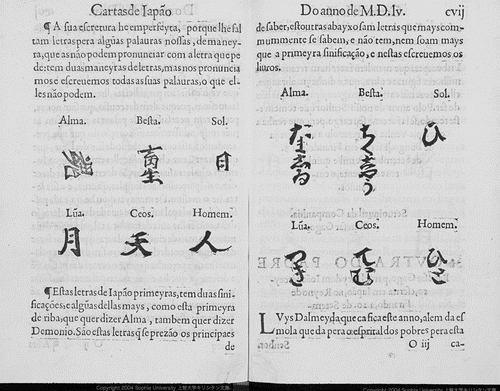 Cartas de Iapão
¶ A sua escretura he emperfeyta, porque lhe fal
tam letras pera algũas palauras nossas, de maney-
ra, que as não podem pronunciar com a letra que po
de: tem duas maneyras de letras, mas nos pronuncia
mos e escreuemos todas as suas palauras, o que el-
les não podem.
Alma. Besta. Sol.
畜生 日
Lũa. Ceos. Homem.
月 天 人
¶ Estas letras de Iapão primeyras, tem duas sini-
ficações, e algũas dellas mays, como esta primeyra
de riba, que quer dizer Alma, tambem quer dizer
Demonio. São estas letras q̃ se prezão os principais
de
Do anno de M.D.lv. cvij
de saber, estoutras abayxo sam letras que mays com-
mummente se sabem, e não tem, nem soam mays
que a primeyra sinificação, e nestas escreuemos os
liuros.
Alma. Besta. Sol.
たましゐ ちくしゃう ひ
Lũa. Ceos. Homem.
つき てむ ひと
LVys Dalmeyda que ca fica este anno, alem da es
mola que da pera o esprital dos pobres pera esta
O iij ca-
Copyright 2004 Sophia University 上智大学キリシタン文庫
Copyright 2004 Sophia University 上智大学キリシタン文庫